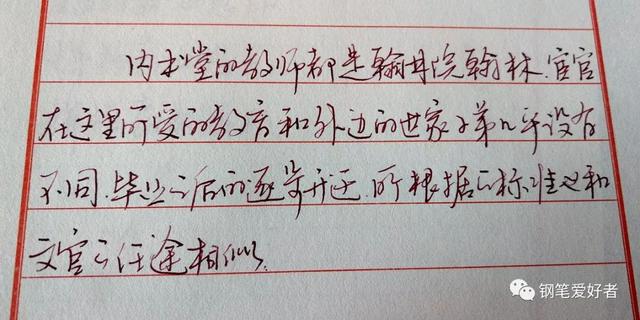 内书堂的教师都是翰林院翰林.宦官
在这里所受的教育和外边的世家子弟几乎没有
不同.毕业之后的逐步升迁.所根据之标准也和
文官之仕途相似.
钢笔爱好者